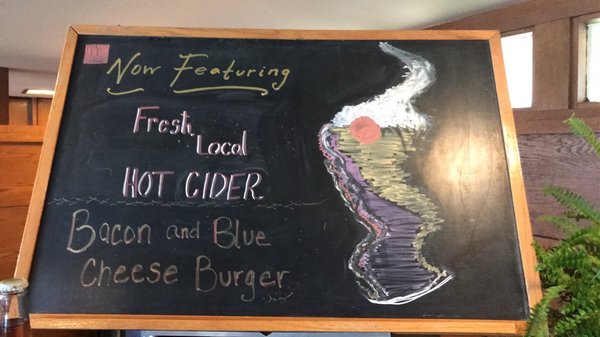 Now Featuring
Fresh, Local
HOT CIDER
Bacon and Blue
Cheese Burger